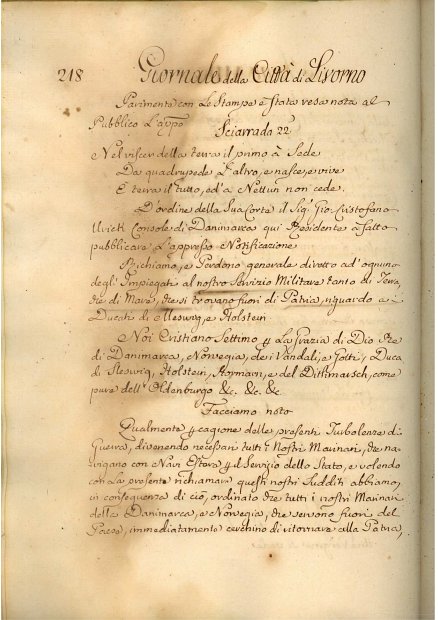 218 Giornale della Città di Livorno
Parimente con le Stampe è stata resa nota al
Pubblico l'appo Sciarrada 22
Nel viscer della terra il primo à Sede
Da quadrupede l'altro, e nasce, e vive
È terra il tutto, ed'à Nettun non cede.
D'ordine della Sua Corte il Sig. Gio: Cristofano
Ulrich Console di Danimarca qui Residente à fatto
pubblicare l'appresso Notificazione
Richiamo, e Perdono generale diretto ad'ognuno
degl'Impiegati al nostro Servizio Militare tanto di Terra,
che di Mare, che si trovano fuori di Patria, riguardo a i
Ducati di Sleswig, e Holstein
Noi Cristiano Settimo p la Grazia di Dio Re
di Danimarca, Norvegia, de i Vandali, e Gotti, Duca
di Sleswig, Holstein, Stormarn, e del Dithmarsch, come
pure dell'Oldenburgo &c. &c. &c.
Facciamo noto
Qualmente p cagione delle presenti Turbolenze di
Guerra, divenendo necessari tutti i Nostri Marinari, che na-
vigano con Navi Estere p il Servizio dello Stato, e volendo
con la presente richiamare questi nostri Sudditi abbiamo,
in conseguenza di ciò, ordinato che tutti i nostri Marinari
della Danimarca, e Norvegia, che servono fuori del
Paese, immediatamente cerchino di ritornare alla Patria,